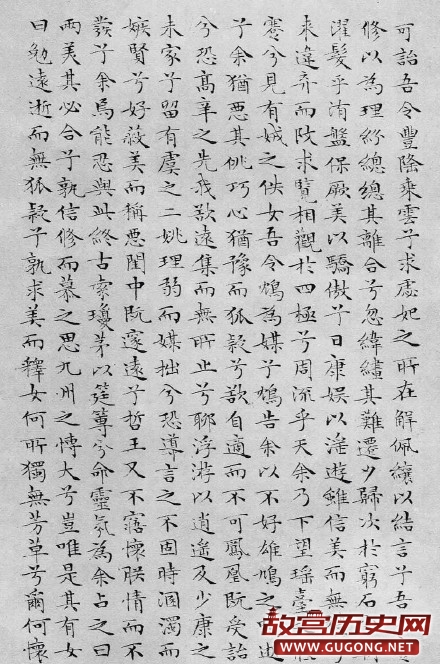 可詒吾令豐隆乘雲兮求虙妃之所在解佩纕以結言兮吾
修以為理紛總總其離合兮忽緯繣其難遷夕歸次於窮石
濯髮乎洧盤保厥美以驕傲兮日康娛以淫遊雖信美而無
來違弃而改求覽相觀於四極兮周流乎天余乃下望瑤臺
蹇兮見有娀之佚女吾令鴆為媒兮鴆告余以不好雄鳩之
兮余猶惡其佻巧心猶豫而狐疑兮欲自適而不可鳳凰既受詒
兮恐高辛之先我欲遠集而無所止兮聊浮游以逍遙及少康之
未家兮留有虞之二姚理弱而媒拙兮恐導言之不固時溷濁而
嫉賢兮好蔽美而稱惡閨中既邃遠兮哲王又不寤懷朕情而不
發兮余焉能忍與此終古索瓊茅以筳篿兮命靈氛為余占之曰
兩美其必合兮孰信修而慕之思九州之博大兮豈唯是其有女
曰勉遠逝而無狐疑兮孰求美而釋女何所獨無芳草兮爾何懷
故宫历史网
WWW.GUGONG.NET